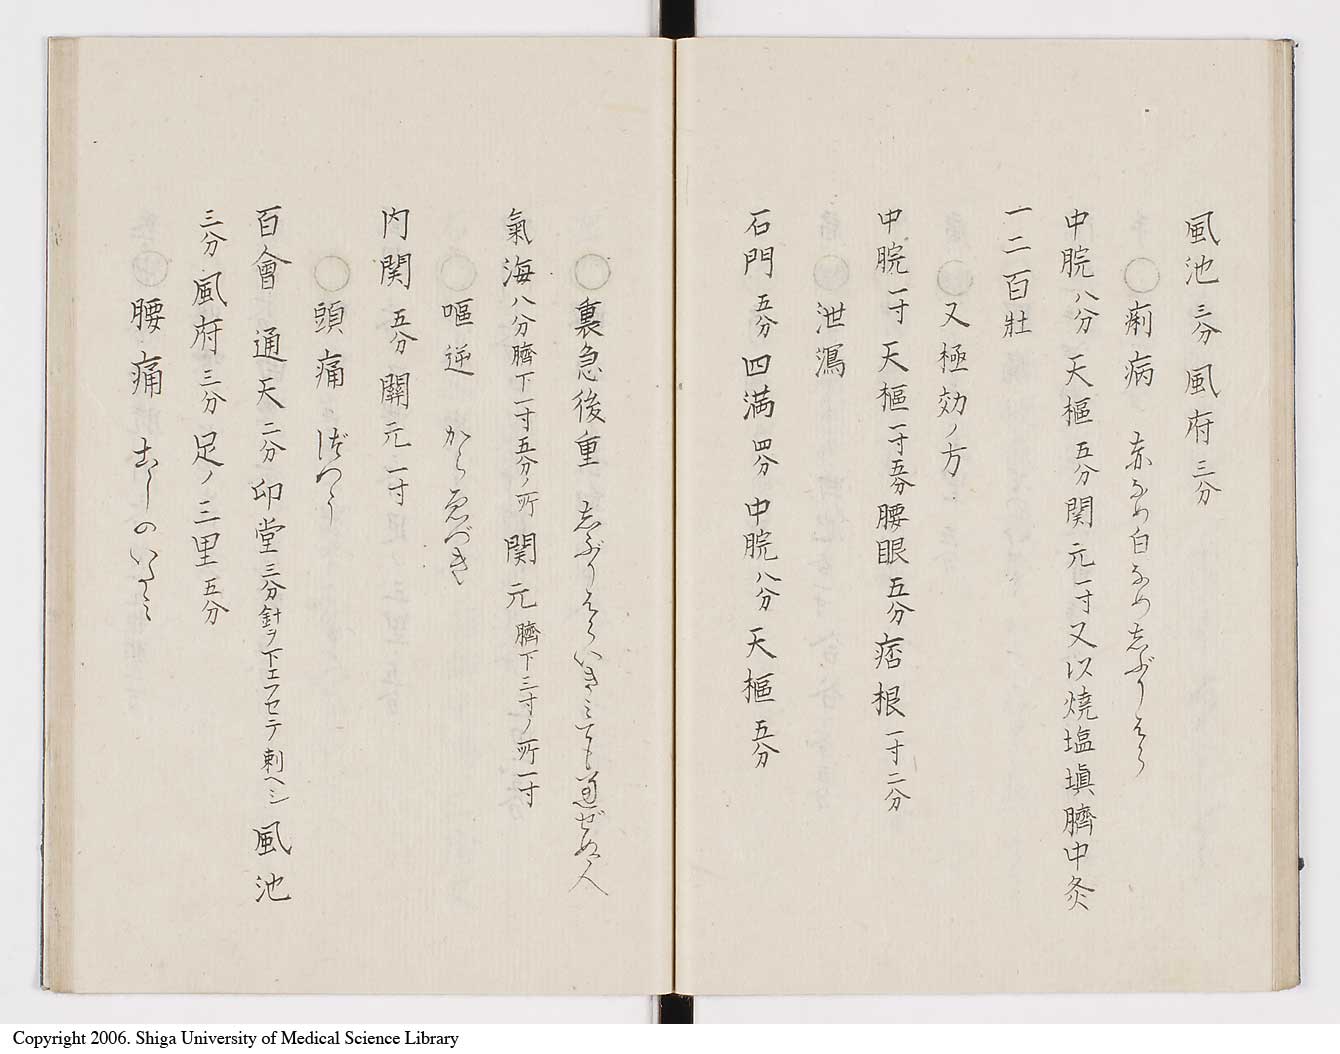 風池 三分 風府 三分
○痢病 赤なめ白なめしぶりはら
中脘 八分 天樞 五分 関元 一寸 又以焼塩塡臍中灸
一二百壯
○又極効ノ方
中脘 一寸 天樞 一寸五分 腰眼 五分 痞根 一寸二分
○泄瀉
石門 五分 四満 四分 中脘 八分 天樞 五分
○裏急後重 しぶりはらいきみても通ぜぬ人
氣海 八分臍下一寸五分ノ所 関元 臍下三寸ノ所一寸
○嘔逆 からゑづき
内関 五分 關元 一寸
○頭痛 づつう
百會 通天 二分 印堂 三分針ヲ下エフセテ刺ヘシ 風池
三分 風府 三分 足ノ三里 五分
○腰痛 こしのいたミ
Copyright 2006. Shiga University of Medical Science Library